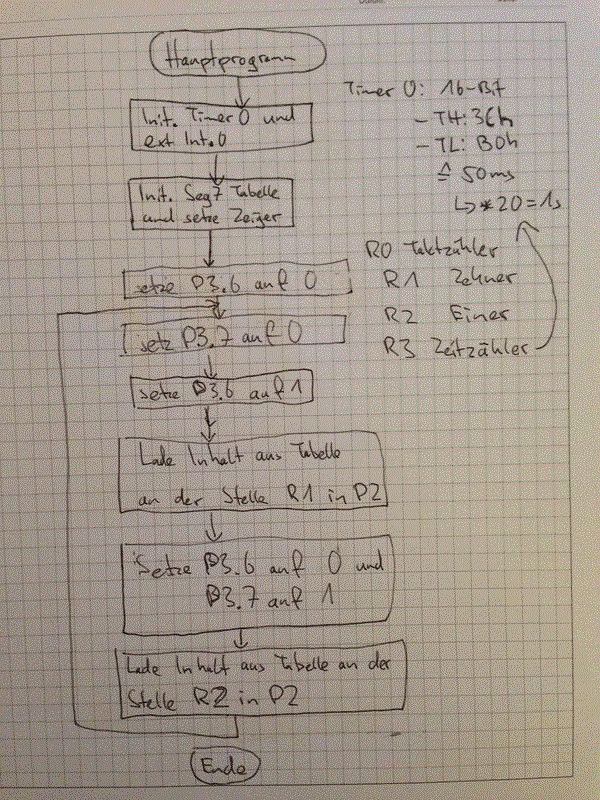 Hauptprogramm
Init. Timer 0 und
ext Int. 0
Init. Seg7 Tabelle
und setze Zeiger
setze P3.6 auf 0
setz P3.7 auf 0
setze P3.6 auf 1
Lade Inhalt aus Tabelle
an der Stelle R1 in P2
Setze P3.6 auf 0 und
P3.7 auf 1
Lade Inhalt aus Tabelle an der
Stelle R2 in P2
Ende
Timer 0: 16-Bit
- TH: 3Ch
- TL: B0h
≙ 50ms
↳ * 20 = 1s
R0 Taktzähler
R1 Zehner
R2 Einer
R3 Zeitzähler